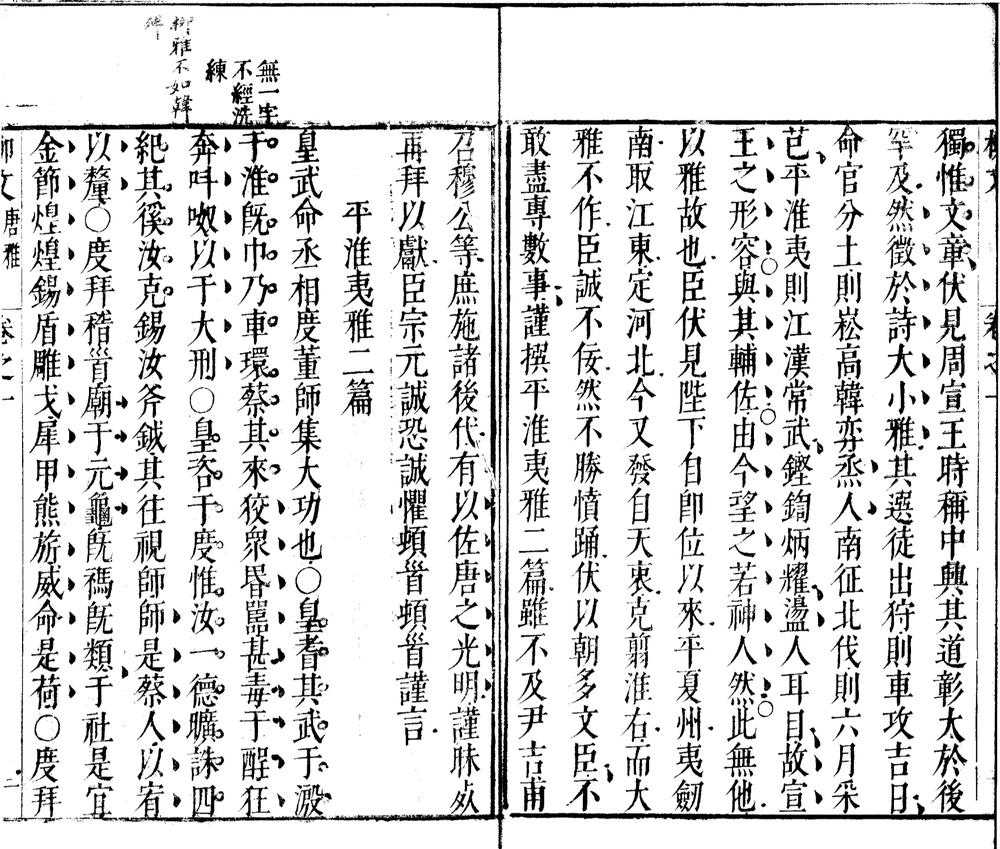 獨惟文章伏見周宣王時稱中興其道彰大於後
罕及然徵於詩大小雅其選徒出狩則車攻吉日
命官分土則崧高韓弈烝人南征北伐則六月采
芑平淮夷則江漢常武鏗鍧炳耀盪人耳目故宣
王之形容與其輔佐由今望之若神人然此無他
以雅故也臣伏見陛下自卽位以來平夏州夷劒
南取江東定河北今又發自天衷克翦淮右而大
雅不作臣誠不佞然不勝憤踊伏以朝多文臣不
敢盡專數事謹撰平淮夷雅二篇雖不及尹吉甫
召穆公等庶施諸後代有以佐唐之光明謹昧死
再拜以獻臣宗元誠恐誠懼頓首頓首謹言
平淮夷雅二篇
皇武命丞相度董師集大功也○皇耆其武于溵
于淮旣巾乃車環蔡其來狡衆昬嚚甚毒于酲狂
奔呌呶以干大刑○皇咨于度惟汝一德曠誅四
紀其徯汝克錫汝斧鉞其往視師師是蔡人以宥
以釐○度拜稽首廟于元龜旣禡旣類于社是宜
金節煌煌錫盾雕戈犀甲熊旂威命是荷○度拜
無一字
不經洗
練
柳雅不如韓
碑
柳文 唐雅 卷之一 二